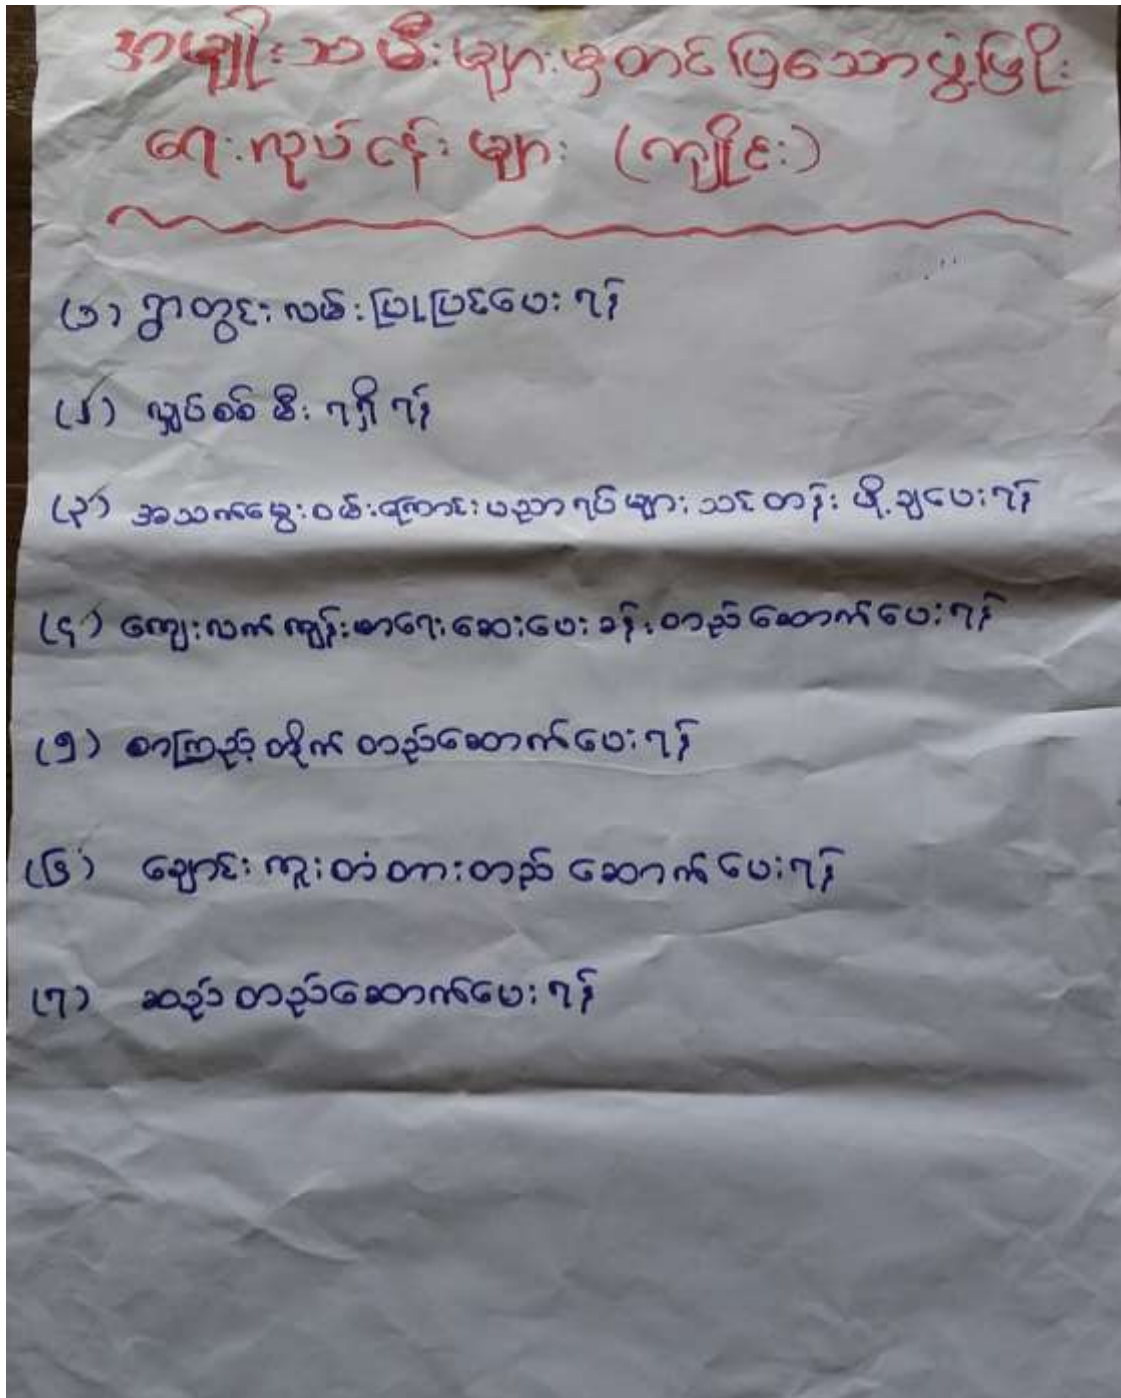 အမျိုးသမီးများမှတင်ပြသောဖွံ့ဖြိုး
ရေးလုပ်ငန်းများ (ကျိုင်း)
(၁) ရွာတွင်းလမ်းပြုပြင်ပေးရန်
(၂) လျှပ်စစ်မီးရရှိရန်
(၃) အသက်မွေးဝမ်းကျောင်းပညာရပ်များ သင်တန်းပို့ချပေးရန်
(၄) ကျေးလက်ကျန်းမာရေးဆေးပေးခန်းတည်ဆောက်ပေးရန်
(၅) စာကြည့်တိုက်တည်ဆောက်ပေးရန်
(၆) ချောင်းကူးတံတားတည်ဆောက်ပေးရန်
(၇) ဆည်တည်ဆောက်ပေးရန်